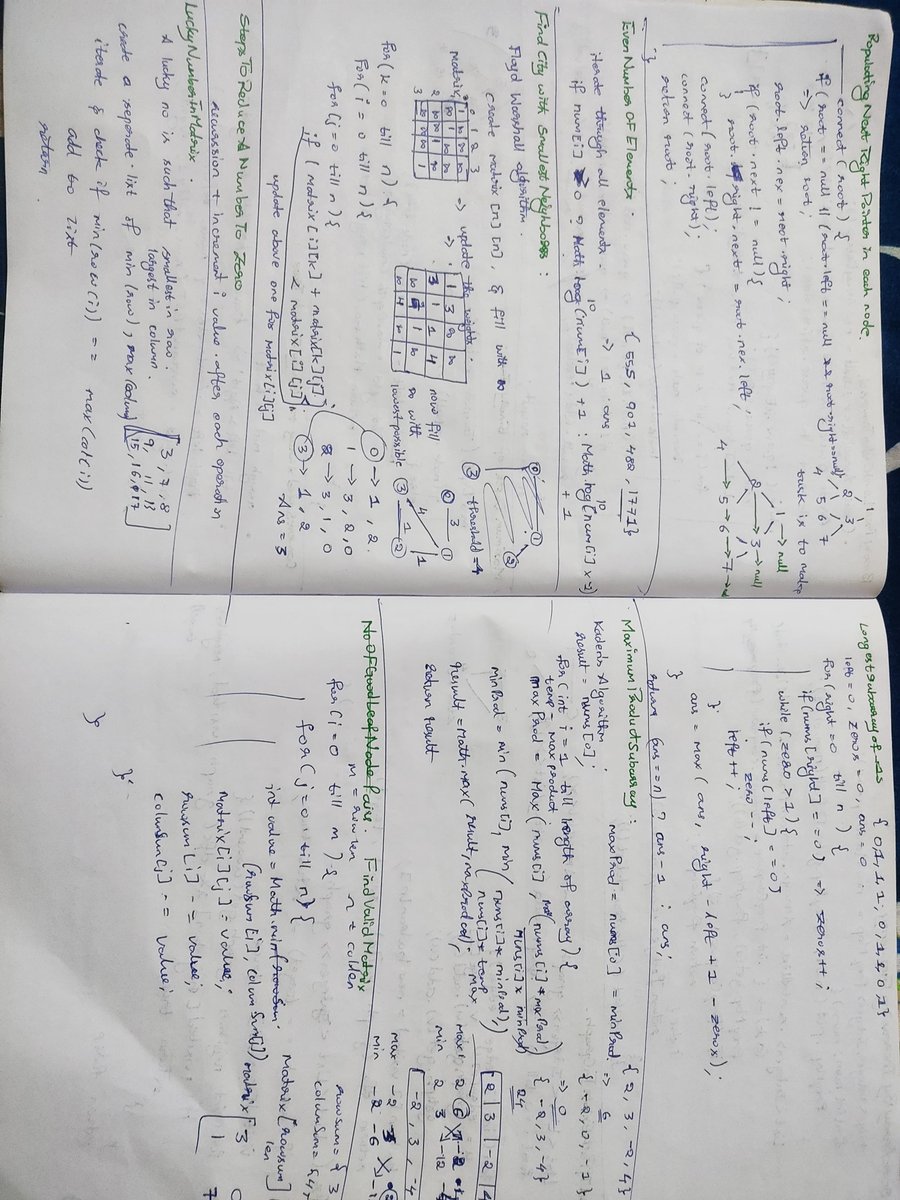 Populating Next Right Pointer in each node.
connect (root) {
if (root == null || (root.left == null && root.right == null)
=> return root;
root.left.next = root.right;
if (root.next != null) {
root.right.next = root.nex.left;
}
connect (root.left);
connect (root.right);
return root;
}
1
2 3
4 5 6 7
task is to make
1 → null
2 → 3 → null
4 → 5 → 6 → 7 →
Even Number Of Elements.
{ 555, 901, 482, 1771}
iterate through all elements.
=> 1 ans
if nums[i] > 0 ? Math.log10 (nums[i]) + 1 : Math.log10 (nums[i] x -1)
+ 1
Find City with Smallest Neighbors :
Floyd Warshall algorithm.
create matrix [n] [n], & fill with ∞
matrix
0 1 2 3
=> update the weights.
=>
now fill
∞ with
lowest possible
threshold = 4
for (k = 0 till n) {
for (i = 0 till n) {
for (j = 0 till n) {
if (matrix [i][k] + matrix[k][j]
< matrix[i][j]
update above one for matrix[i][j]
0 → 1, 2.
1 → 3, 2, 0
2 → 3, 1, 0
3 → 1, 2
Ans = 3
Steps To Reduce A Number To Zero
recurssion + increment i value. after each operation
Lucky Number In Matrix.
A lucky no is such that smallest in row.
largest in column.
create a seperate list of min (row), max (column)
[ 3, 7, 8
9, 11, 13
15, 16, 17 ]
iterate & check if min(row(i)) == max (col(i))
add to list
return.
Longest subarray of 1s
{ 0,1,1,1,0,1,1,0,1}
left = 0, zeros = 0, ans = 0
for (right = 0 till n) {
if (nums[right] == 0) => zeros++;
while (zero > 1) {
if (nums[left] == 0)
zero--;
left++;
}
ans = max ( ans, right - left + 1 - zeros);
}
return (ans == n) ? ans - 1 : ans;
Maximum Product Subarray :
{ 2, 3, -2, 4}
Kaden's Algorithm
maxProd = nums[0] = minProd.
=> 6
result = nums[0];
{ -2, 0, -1 }
for (int i = 1 till length of array) {
=> 0
temp = maxproduct
maxProd = Max ( nums[i], max (nums[i] * maxProd,
nums[i] * minProd)
{ -2, 3, -4 }
24
minProd = min (nums[i], min (nums[i] * minProd),
nums[i] * temp
max
result = Math.max( result, maxProd);
return result
2 | 3 | -2 | 4
max
min
-2, 3, -4
max -2 3
min -2 -6
No Of Good Leaf Node Pairs.
Find Valid Matrix
m = rowlen n = collen
for (i = 0 till m) {
for (j = 0 till n) {
int value = Math.min
(rowSum [i], columSum[j])
Matrix[i][j] = value;
rowsum [i] -= value;
columSum[j] -= value;
}
}
rowsum = { 3
columSum = {4,
Matrix [rowsum
len ]
matrix [ 3
1 7